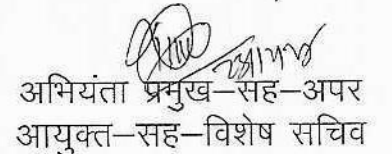 अभियंता प्रमुख–सह–अपर
आयुक्त–सह–विशेष सचिव